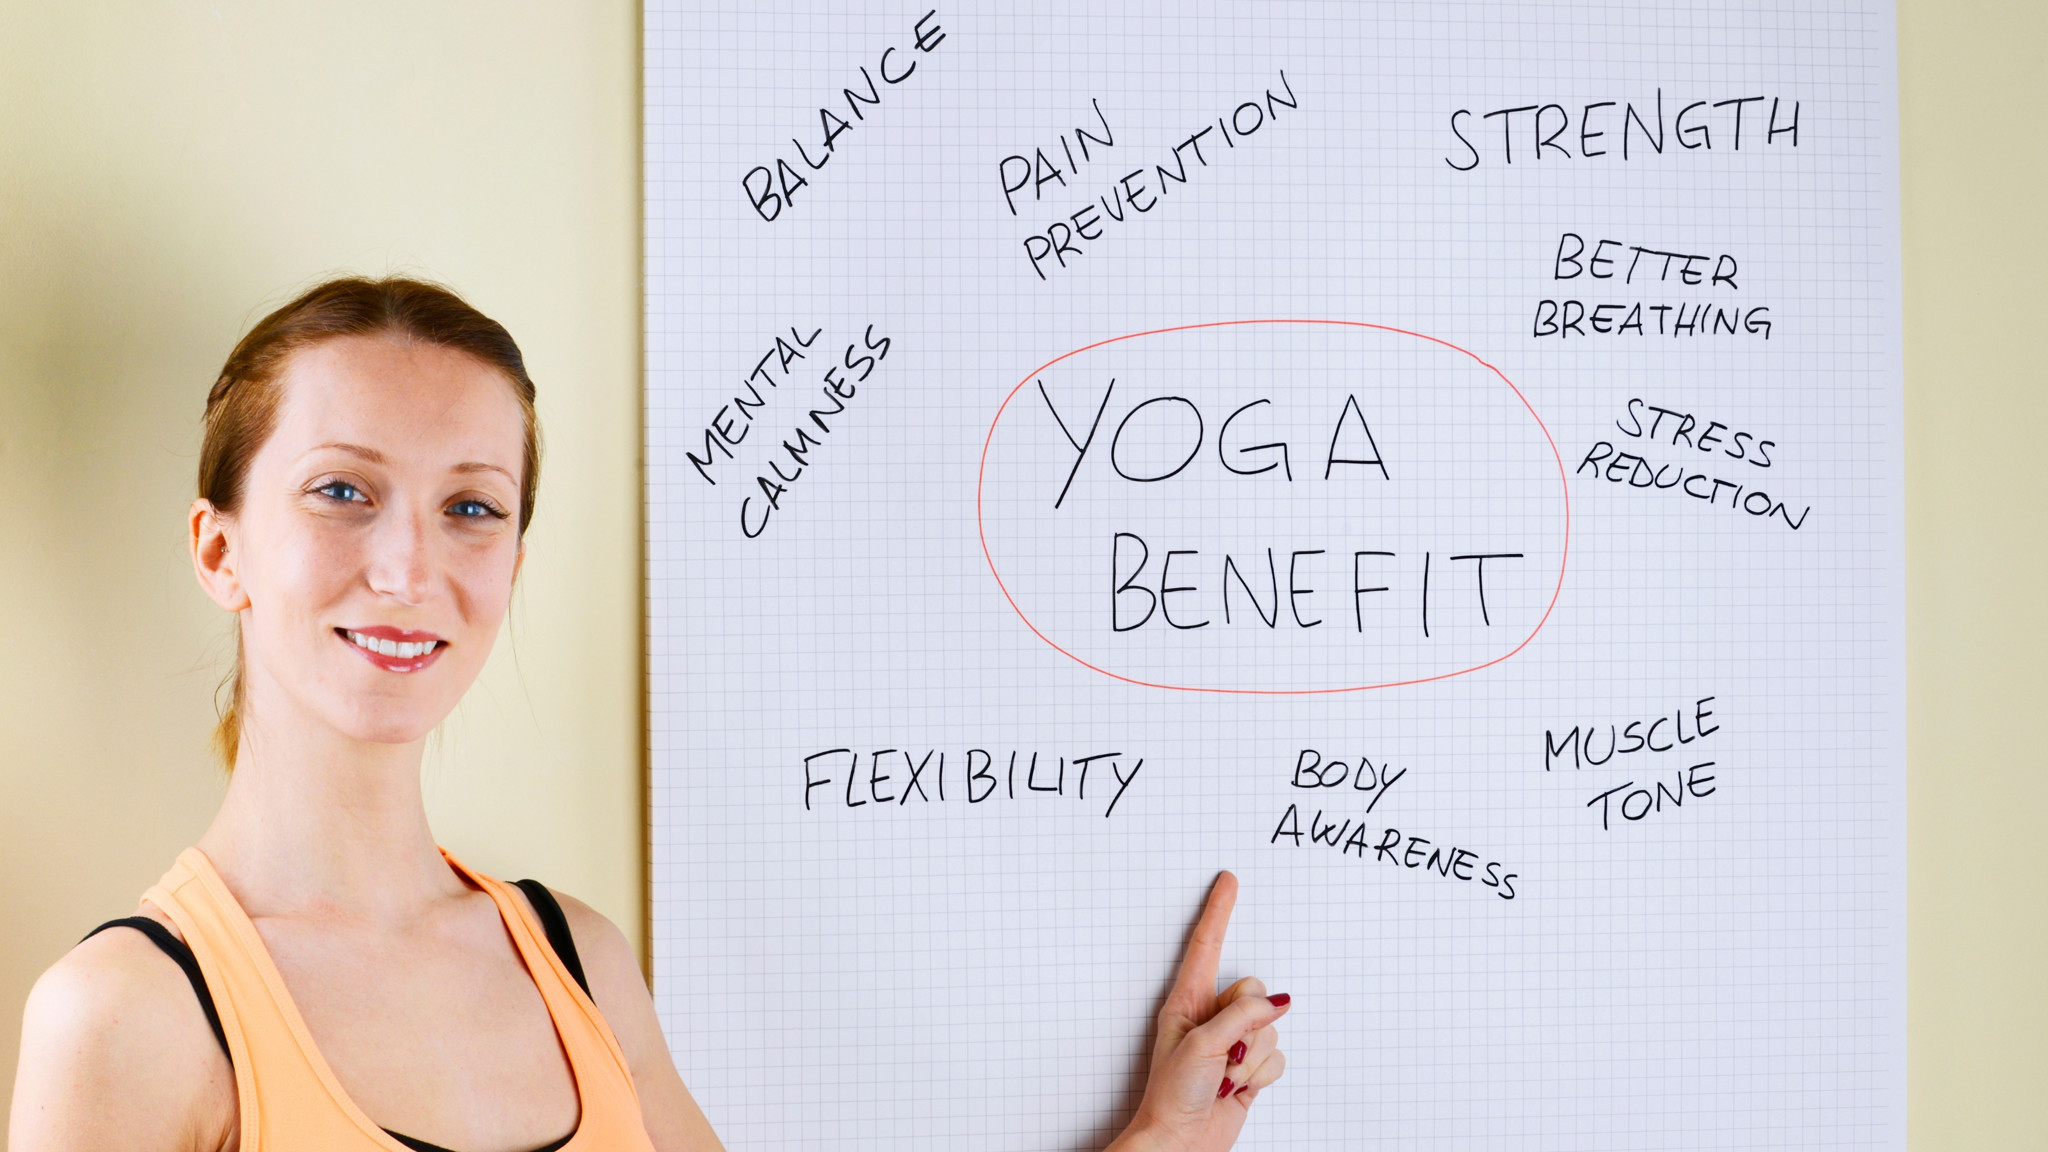 BALANCE
PAIN
PREVENTION
STRENGTH
BETTER
BREATHING
MENTAL
CALMNESS
YOGA
BENEFIT
STRESS
REDUCTION
FLEXIBILITY
BODY
AWARENESS
MUSCLE
TONE